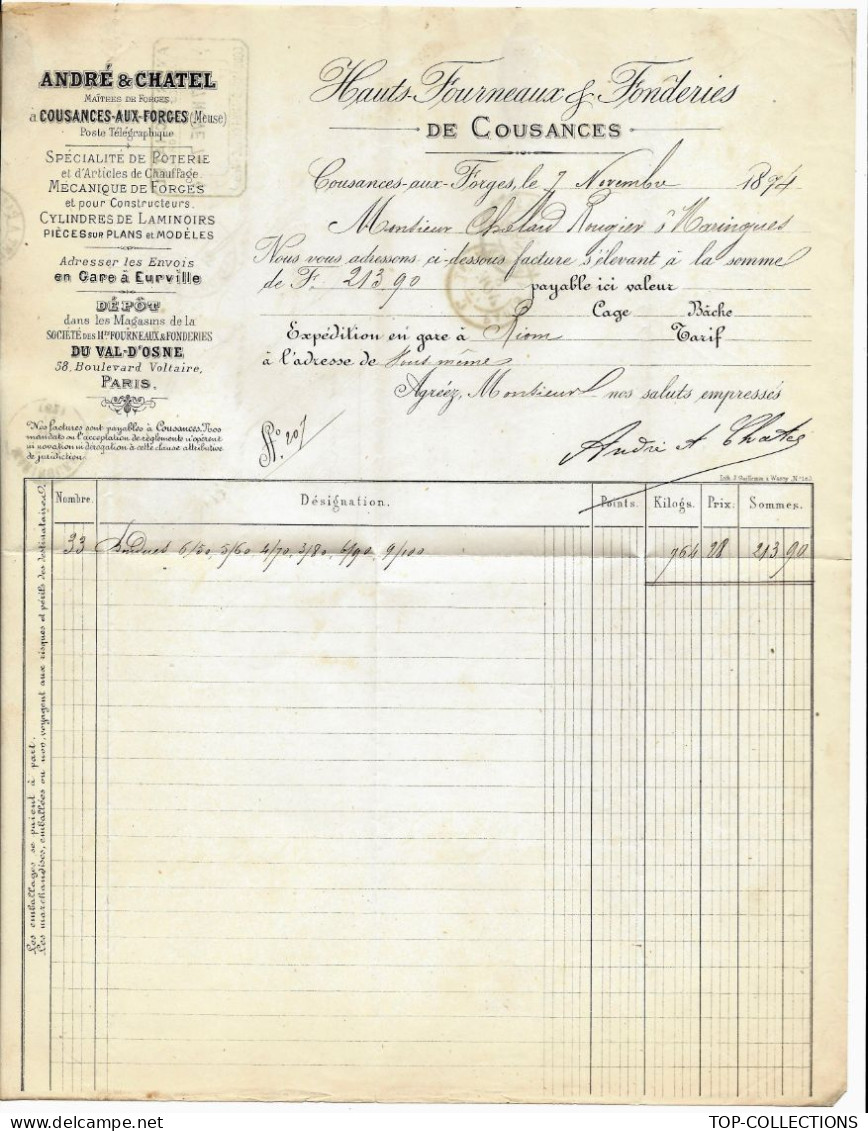 ANDRÉ & CHATEL
MAÎTRES DE FORGES,
à COUSANCES-AUX-FORGES (Meuse)
Poste Télégraphique
SPÉCIALITÉ DE POTERIE
et d'Articles de Chauffage.
MÉCANIQUE DE FORGES
et pour Constructeurs.
CYLINDRES DE LAMINOIRS
PIÈCES SUR PLANS et MODÈLES
Adresser les Envois
en Gare à Eurville
DÉPÔT
dans les Magasins de la
SOCIÉTÉ DES Hts FOURNEAUX & FONDERIES
DU VAL-D'OSNE
58, Boulevard Voltaire,
PARIS.
Nos factures sont payables à Cousances. Nos
mandats ou l'acceptation de règlements n'opèrent
ni novation ni dérogation à cette clause attributive
de juridiction.
Hauts-Fourneaux & Fonderies
DE COUSANCES
Cousances-aux-Forges, le 7 Novembre 1894
Monsieur Chelard Rougier à Maringues
Nous vous adressons ci-dessous facture s'élevant à la somme
de F. 213,90 payable ici valeur
Cage Bâche
Expédition en gare à Riom Tarif
à l'adresse de Vous même
Agréez, Monsieur nos saluts empressés
No 207
André & Chatel
Nombre. Désignation. Points. Kilogs. Prix. Sommes.
33 6/50, 5/60, 4/70, 3/80, 6/90, 9/100 764 28 213 90
Les emballages se paient à part.
Les marchandises, emballées ou non, voyagent aux risques et périls des destinataires.
TOP-COLLECTIONS